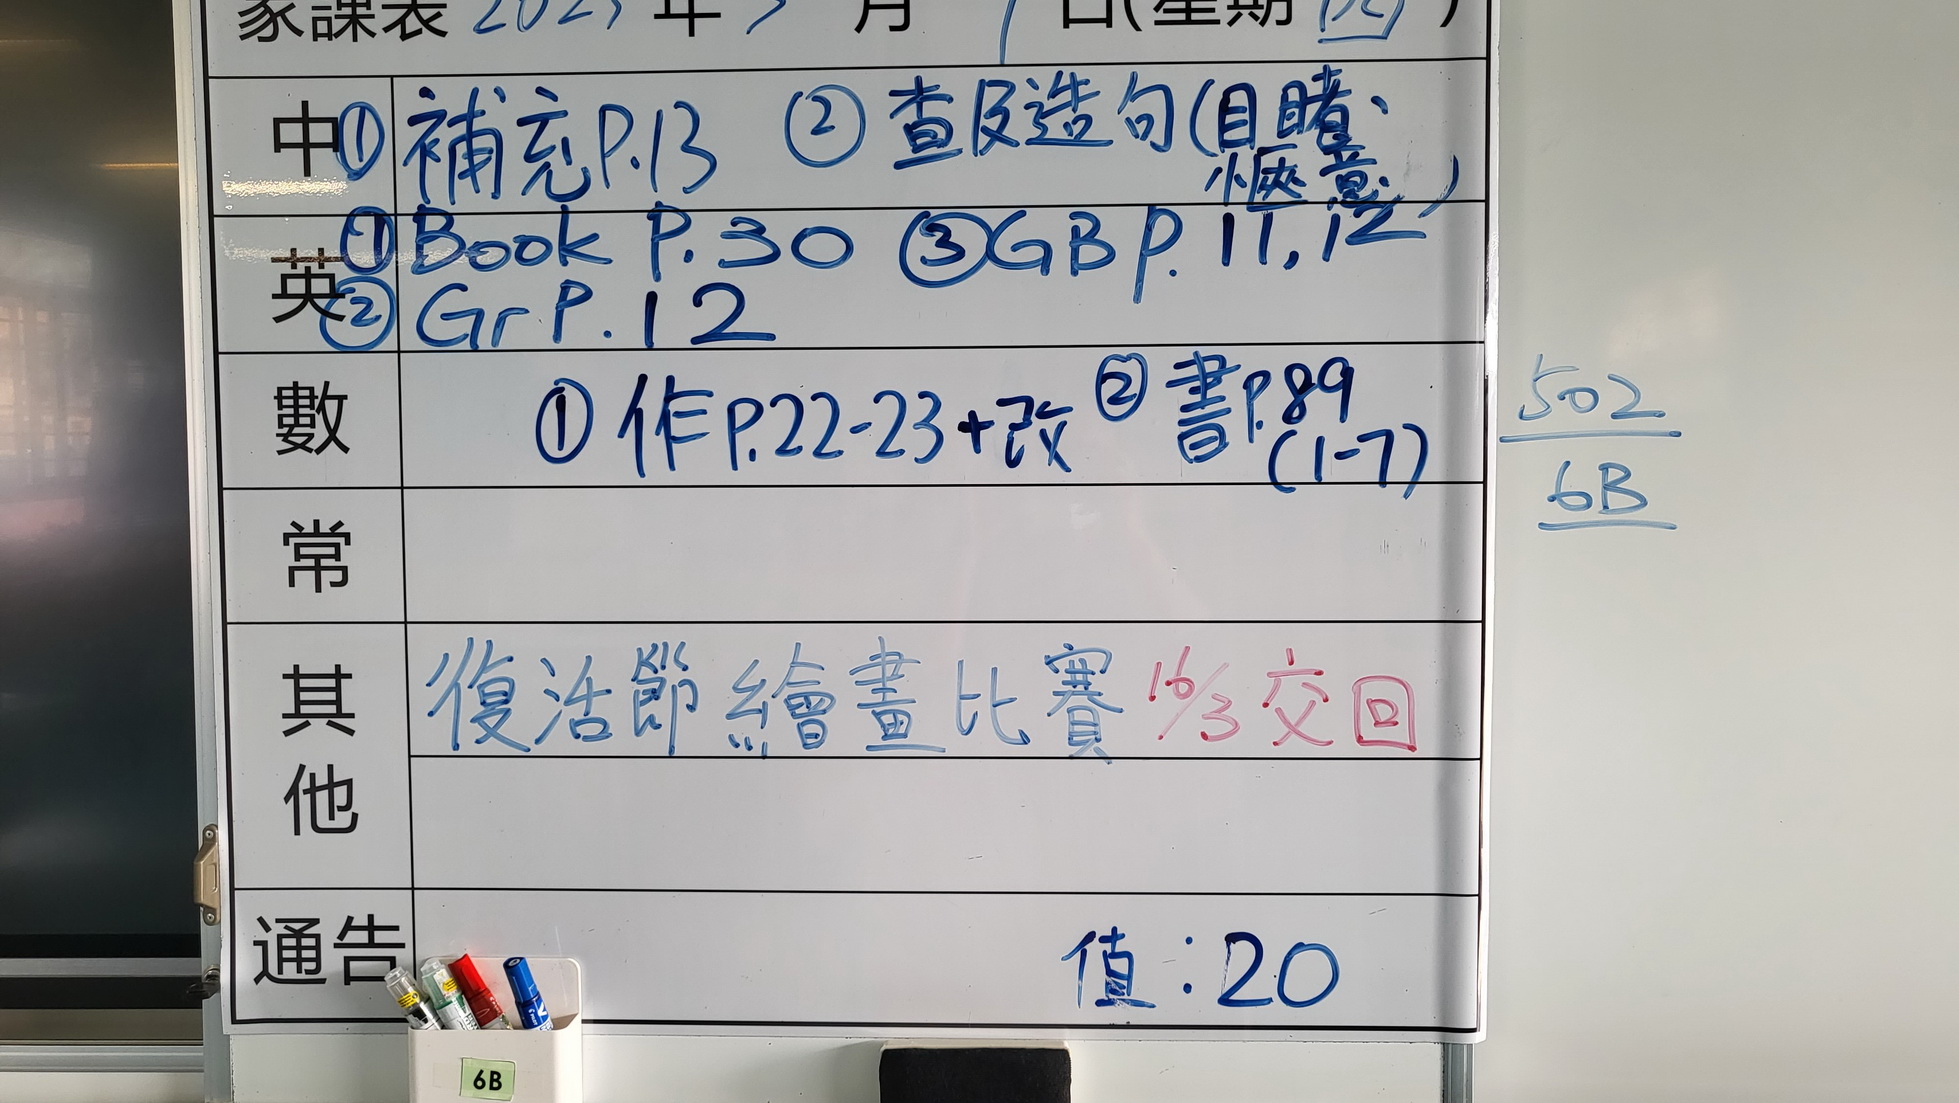 家課表 2023 年 3 月 9 日(星期 四 )
中 ① 補充P.13 ② 查及造句(目睹、
愜意)
英 ① Book P.30 ③ GB p. 11, 12
② Gr P. 12
數 ① 作P.22-23+改 ② 書P.89
(1-7)
502
6B
常
其他 復活節繪畫比賽 16/3 交回
通告 值:20
6B